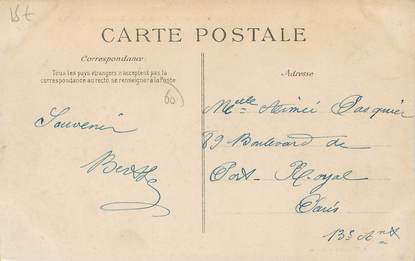 15€
CARTE POSTALE
Correspondance
Tous les pays étrangers n'acceptent pas la
correspondance au recto, se renseigner à la Poste
Adresse
60
Souvenir
Berthe
Melle Aimée Pasquier
89 Boulevard de
Port-Royal
Paris
13e Art